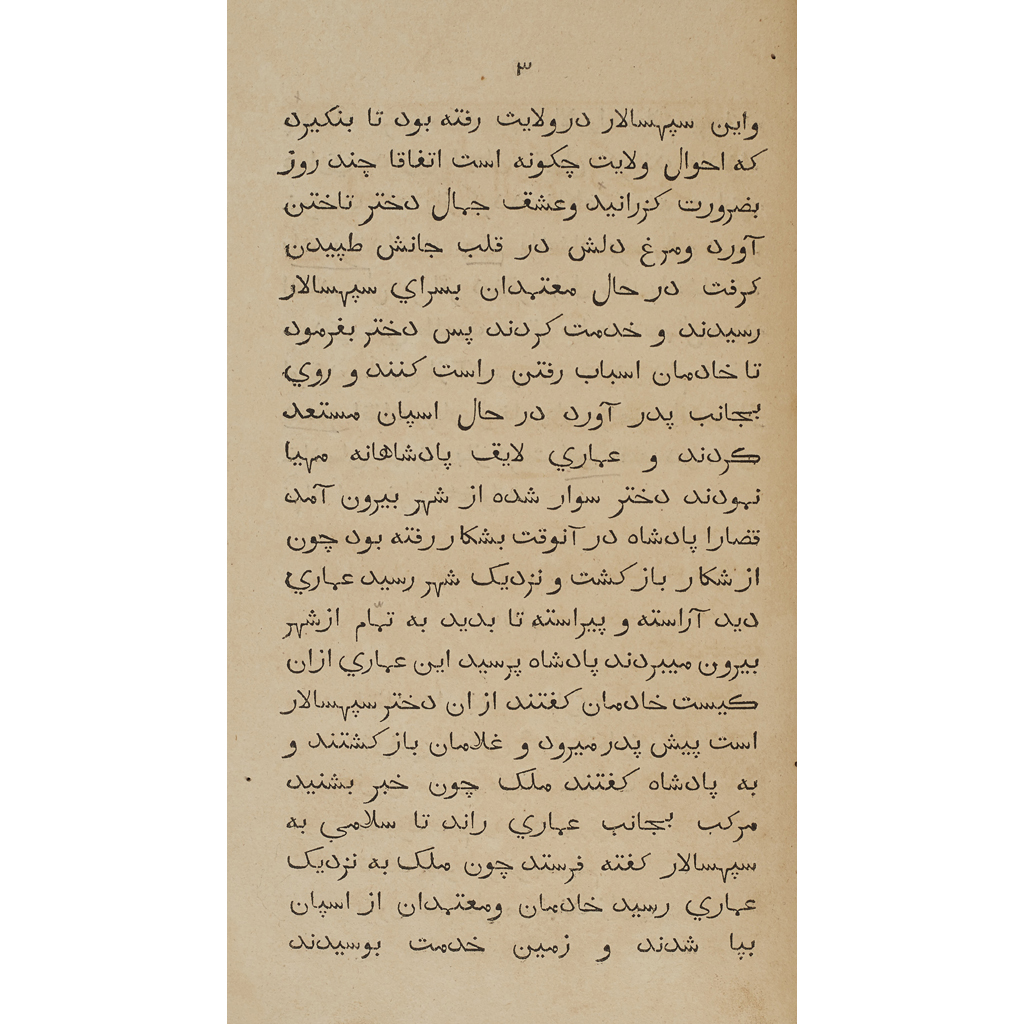 ٣
واین سپهسالار در ولایت رفته بود تا بنکیرد
که احوال ولایت چکونه است اتفاقا چند روز
بضرورت کزرانید وعشق جمال دختر تاختن
آورد ومرغ دلش در قلب جانش طپیدن
کرفت در حال معتمدان بسراي سپهسالار
رسیدند و خدمت کردند پس دختر بفرمود
تا خادمان اسباب رفتن راست کنند و روي
بجانب پدر آورد در حال اسپان مستعد
کردند و عماري لایق پادشاهانه مهیا
نمودند دختر سوار شده از شهر بیرون آمد
قضارا پادشاه در آنوقت بشکار رفته بود چون
از شکار باز کشت و نزدیک شهر رسید عماري
دید آراسته و پیراسته تا بدید به تمام ازشهر
بیرون میبردند پادشاه پرسید این عماري ازان
کیست خادمان کفتند از ان دختر سپهسالار
است پیش پدر میرود و غلامان باز کشتند و
به پادشاه کفتند ملک چون خبر بشنید
مرکب بجانب عماري راند تا سلامي به
سپهسالار کفته فرستد چون ملک به نزدیک
عماري رسید خادمان ومعتمدان از اسپان
بپا شدند و زمین خدمت بوسیدند